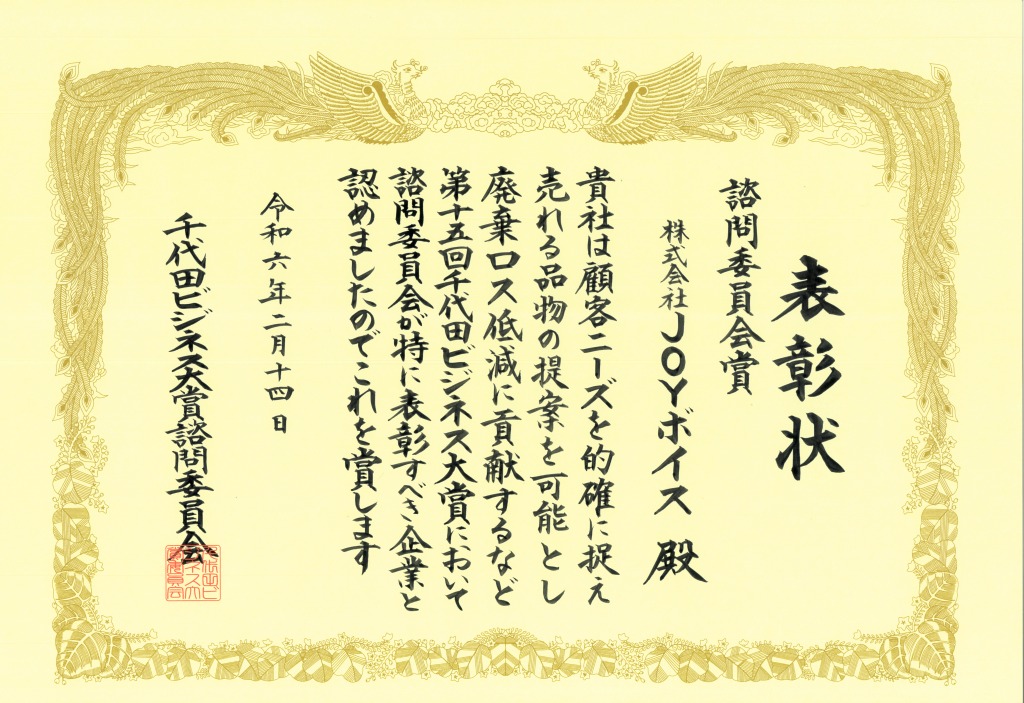 表彰状
諮問委員会賞
株式会社JOYボイス 殿
貴社は顧客ニーズを的確に捉え
売れる品物の提案を可能とし
廃棄ロス低減に貢献するなど
第十五回千代田ビジネス大賞において
諮問委員会が特に表彰すべき企業と
認めましたのでこれを賞します
令和六年二月十四日
千代田ビジネス大賞諮問委員会